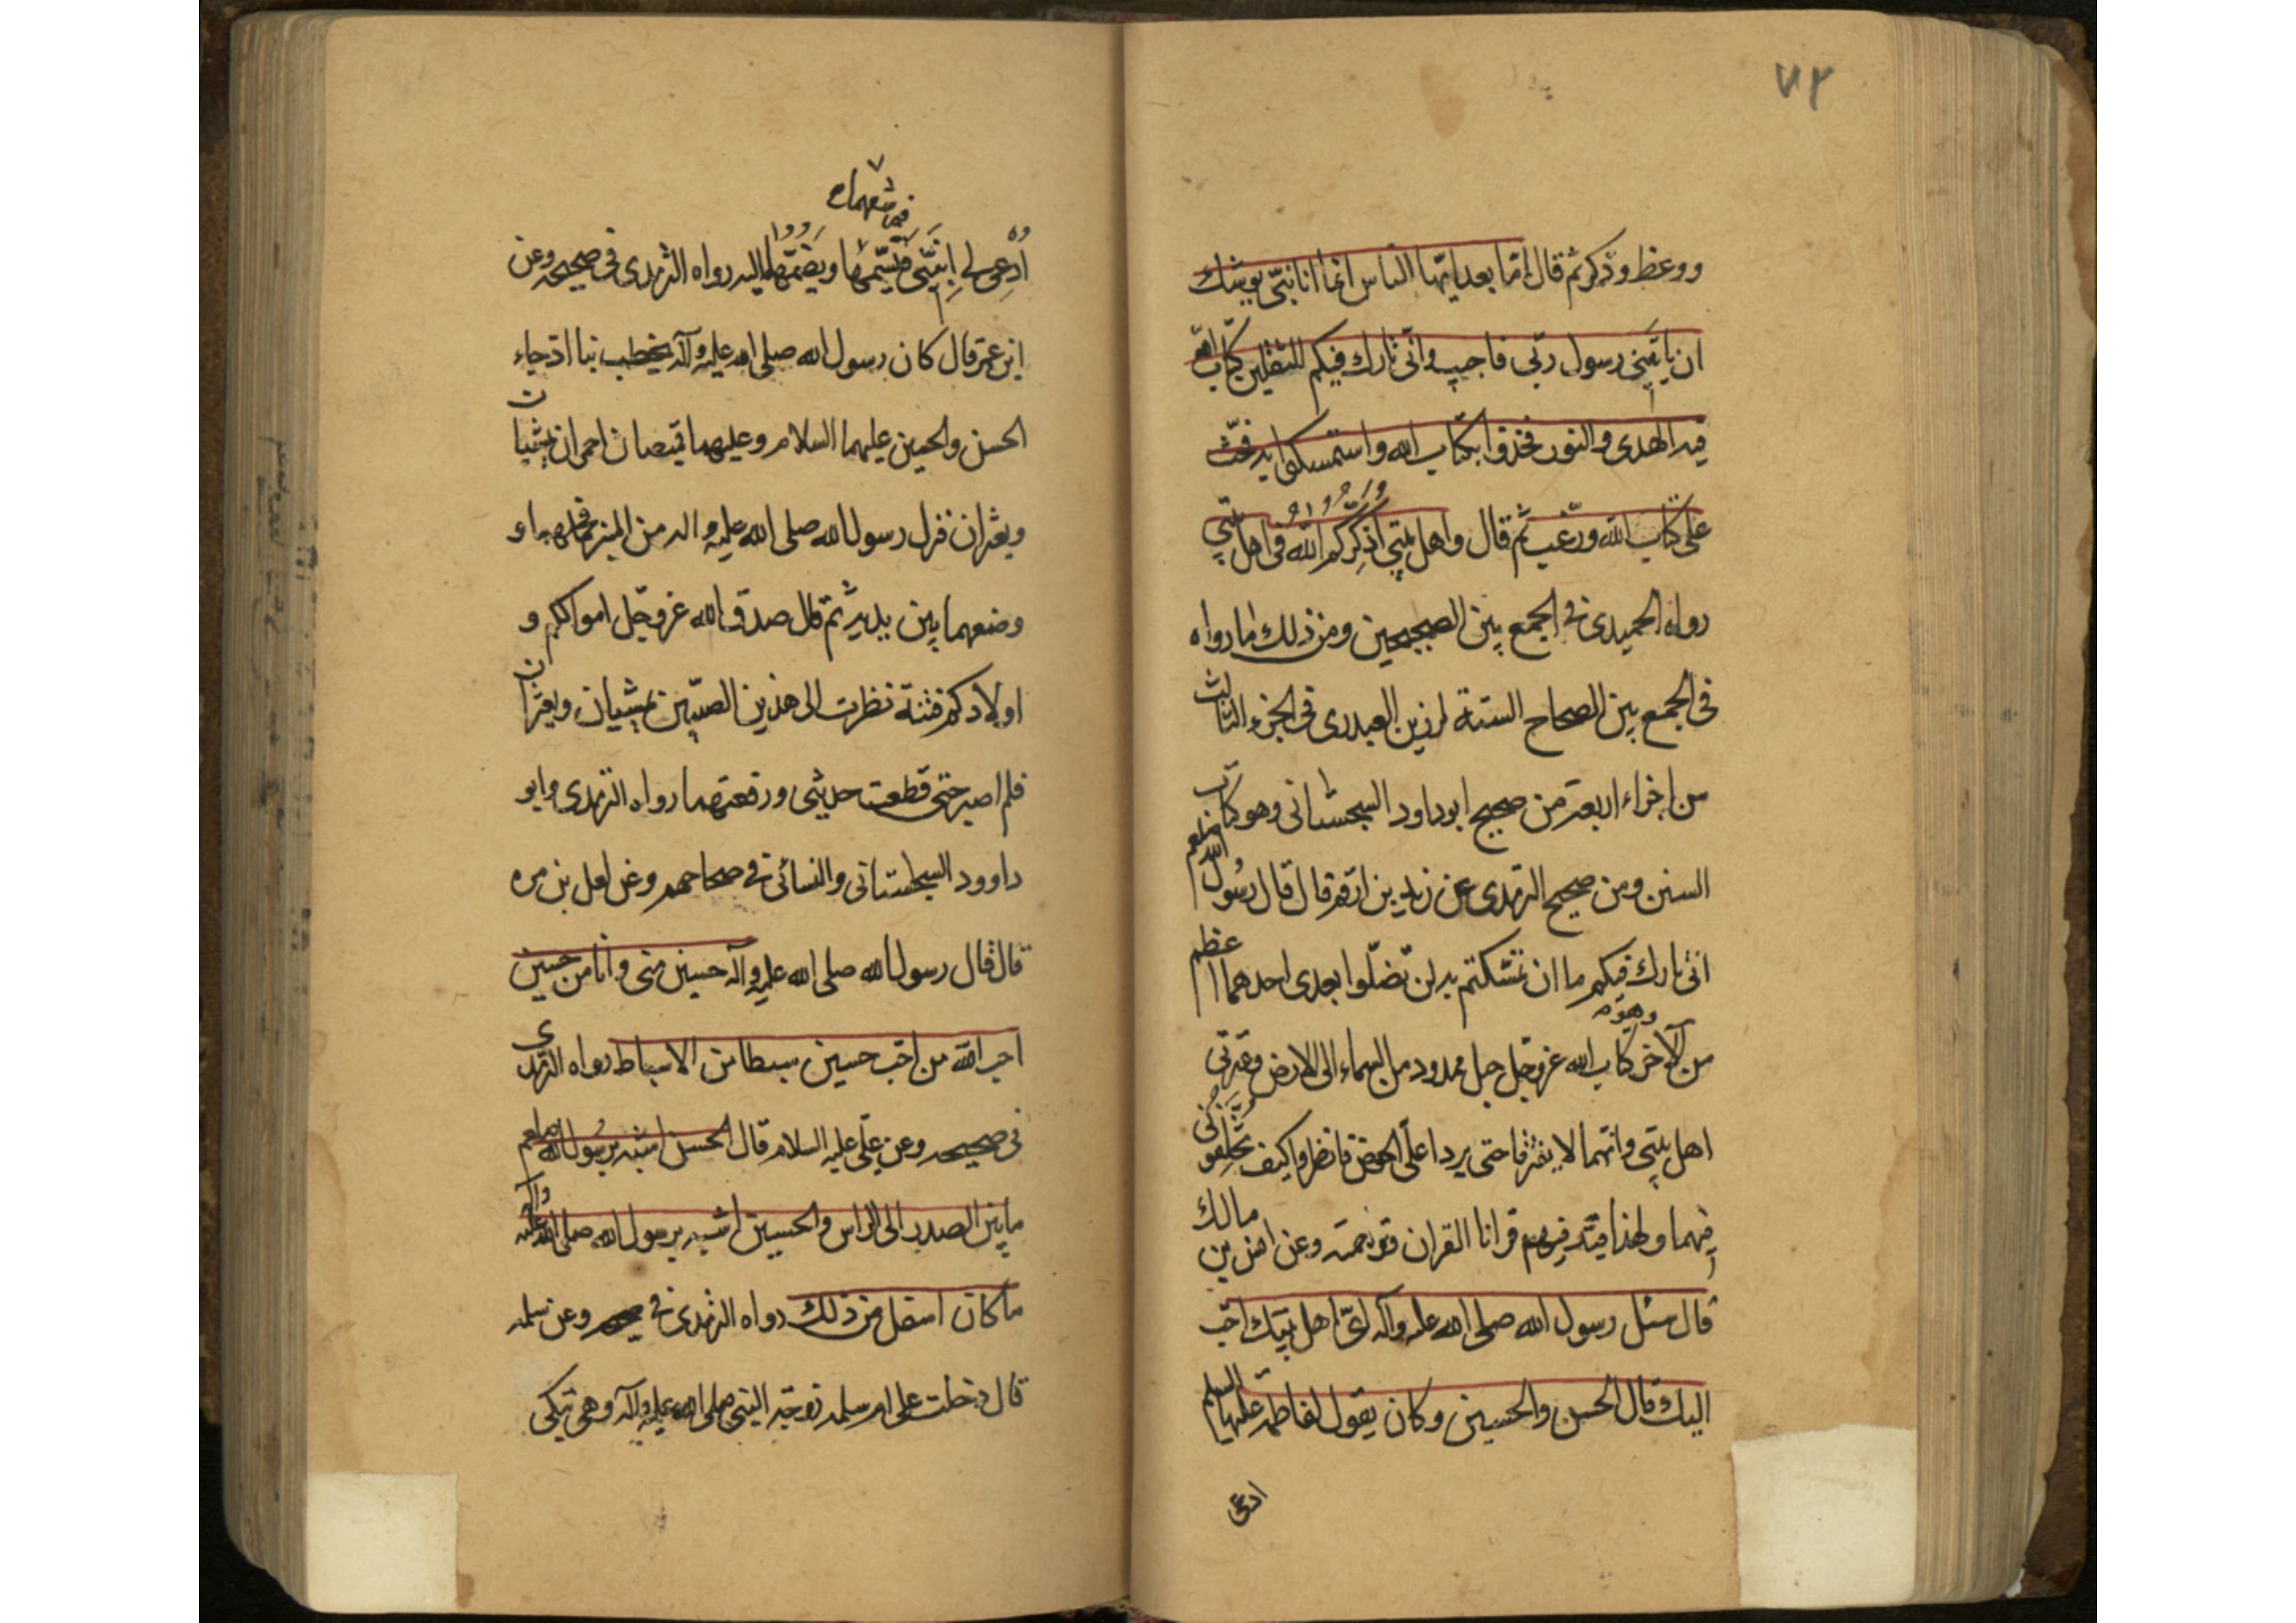 ٧٢
ووعظ وذكر ثم قال اما بعد ايها الناس انما انا نبى يوشك
ان ياتينى رسول ربى فاجيب وانى تارك فيكم الثقلين كتاب الله
فيه الهدى والنور فخذوا بكتاب الله واستمسكوا به فحث
على كتاب الله ورغب ثم قال واهل بيتى اذكركم الله فى اهل بيتى
رواه الحميدى فى الجمع بين الصحيحين ومن ذلك ما رواه
فى الجمع بين الصحاح الستة لرزين العبدرى فى الجزء الثالث
من اجزاء اربعة من صحيح ابو داود السجستانى وهو كتاب
السنن ومن صحيح الترمذى عن زيد بن ارقم قال قال رسول الله صلعم
انى تارك فيكم ما ان تمسكتم به لن تضلوا بعدى احدهما اعظم
من الآخر وهو كتاب الله عز وجل حبل ممدود من السماء الى الارض وعترتى
اهل بيتى وانهما لا يفترقا حتى يردا على الحوض فانظروا كيف تخلفونى
فيهما ولهذا فيهم قرانا القران وعن انس بن مالك
قال سئل رسول الله صلى الله عليه وآله اى اهل بيتك احب
اليك قال الحسن والحسين وكان يقول لفاطمة عليها السلم
ادعى
فيشمهما
ادعى لى ابنىّ ويضمهما اليه رواه الترمذى فى صحيحه وعن
ابن عمر قال كان رسول الله صلى الله عليه وآله يخطب بنا اذ جاء
الحسن والحسين عليهما السلام وعليهما قيصان احمران يمشيان
ويعثران فنزل رسول الله صلى الله عليه واله من المنبر فحملهما و
وضعهما بين يديه ثم قال صدق الله عز وجل اموالكم و
اولادكم فتنة نظرت الى هذين الصبيين يمشيان ويعثران
فلم اصبر حتى قطعت حديثى ورفعتهما رواه الترمذى وابو
داوود السجستانى والنسائى فى صحاحهم وعن لعل بن مره
قال قال رسول الله صلى الله عليه وآله حسين منى وانا من حسين
احب الله من احب حسين سبطا من الاسباط رواه الترمذى
فى صحيحه وعن على عليه السلام قال الحسن اشبه برسول الله صلعم
ما بين الصدر الى الراس والحسين اشبه برسول الله صلى الله عليه وآله
ما كان اسفل من ذلك رواه الترمذى فى صحيحه وعن سلمه
قال دخلت على ام سلمه زوجة النبى صلى الله عليه وآله وهى تبكى